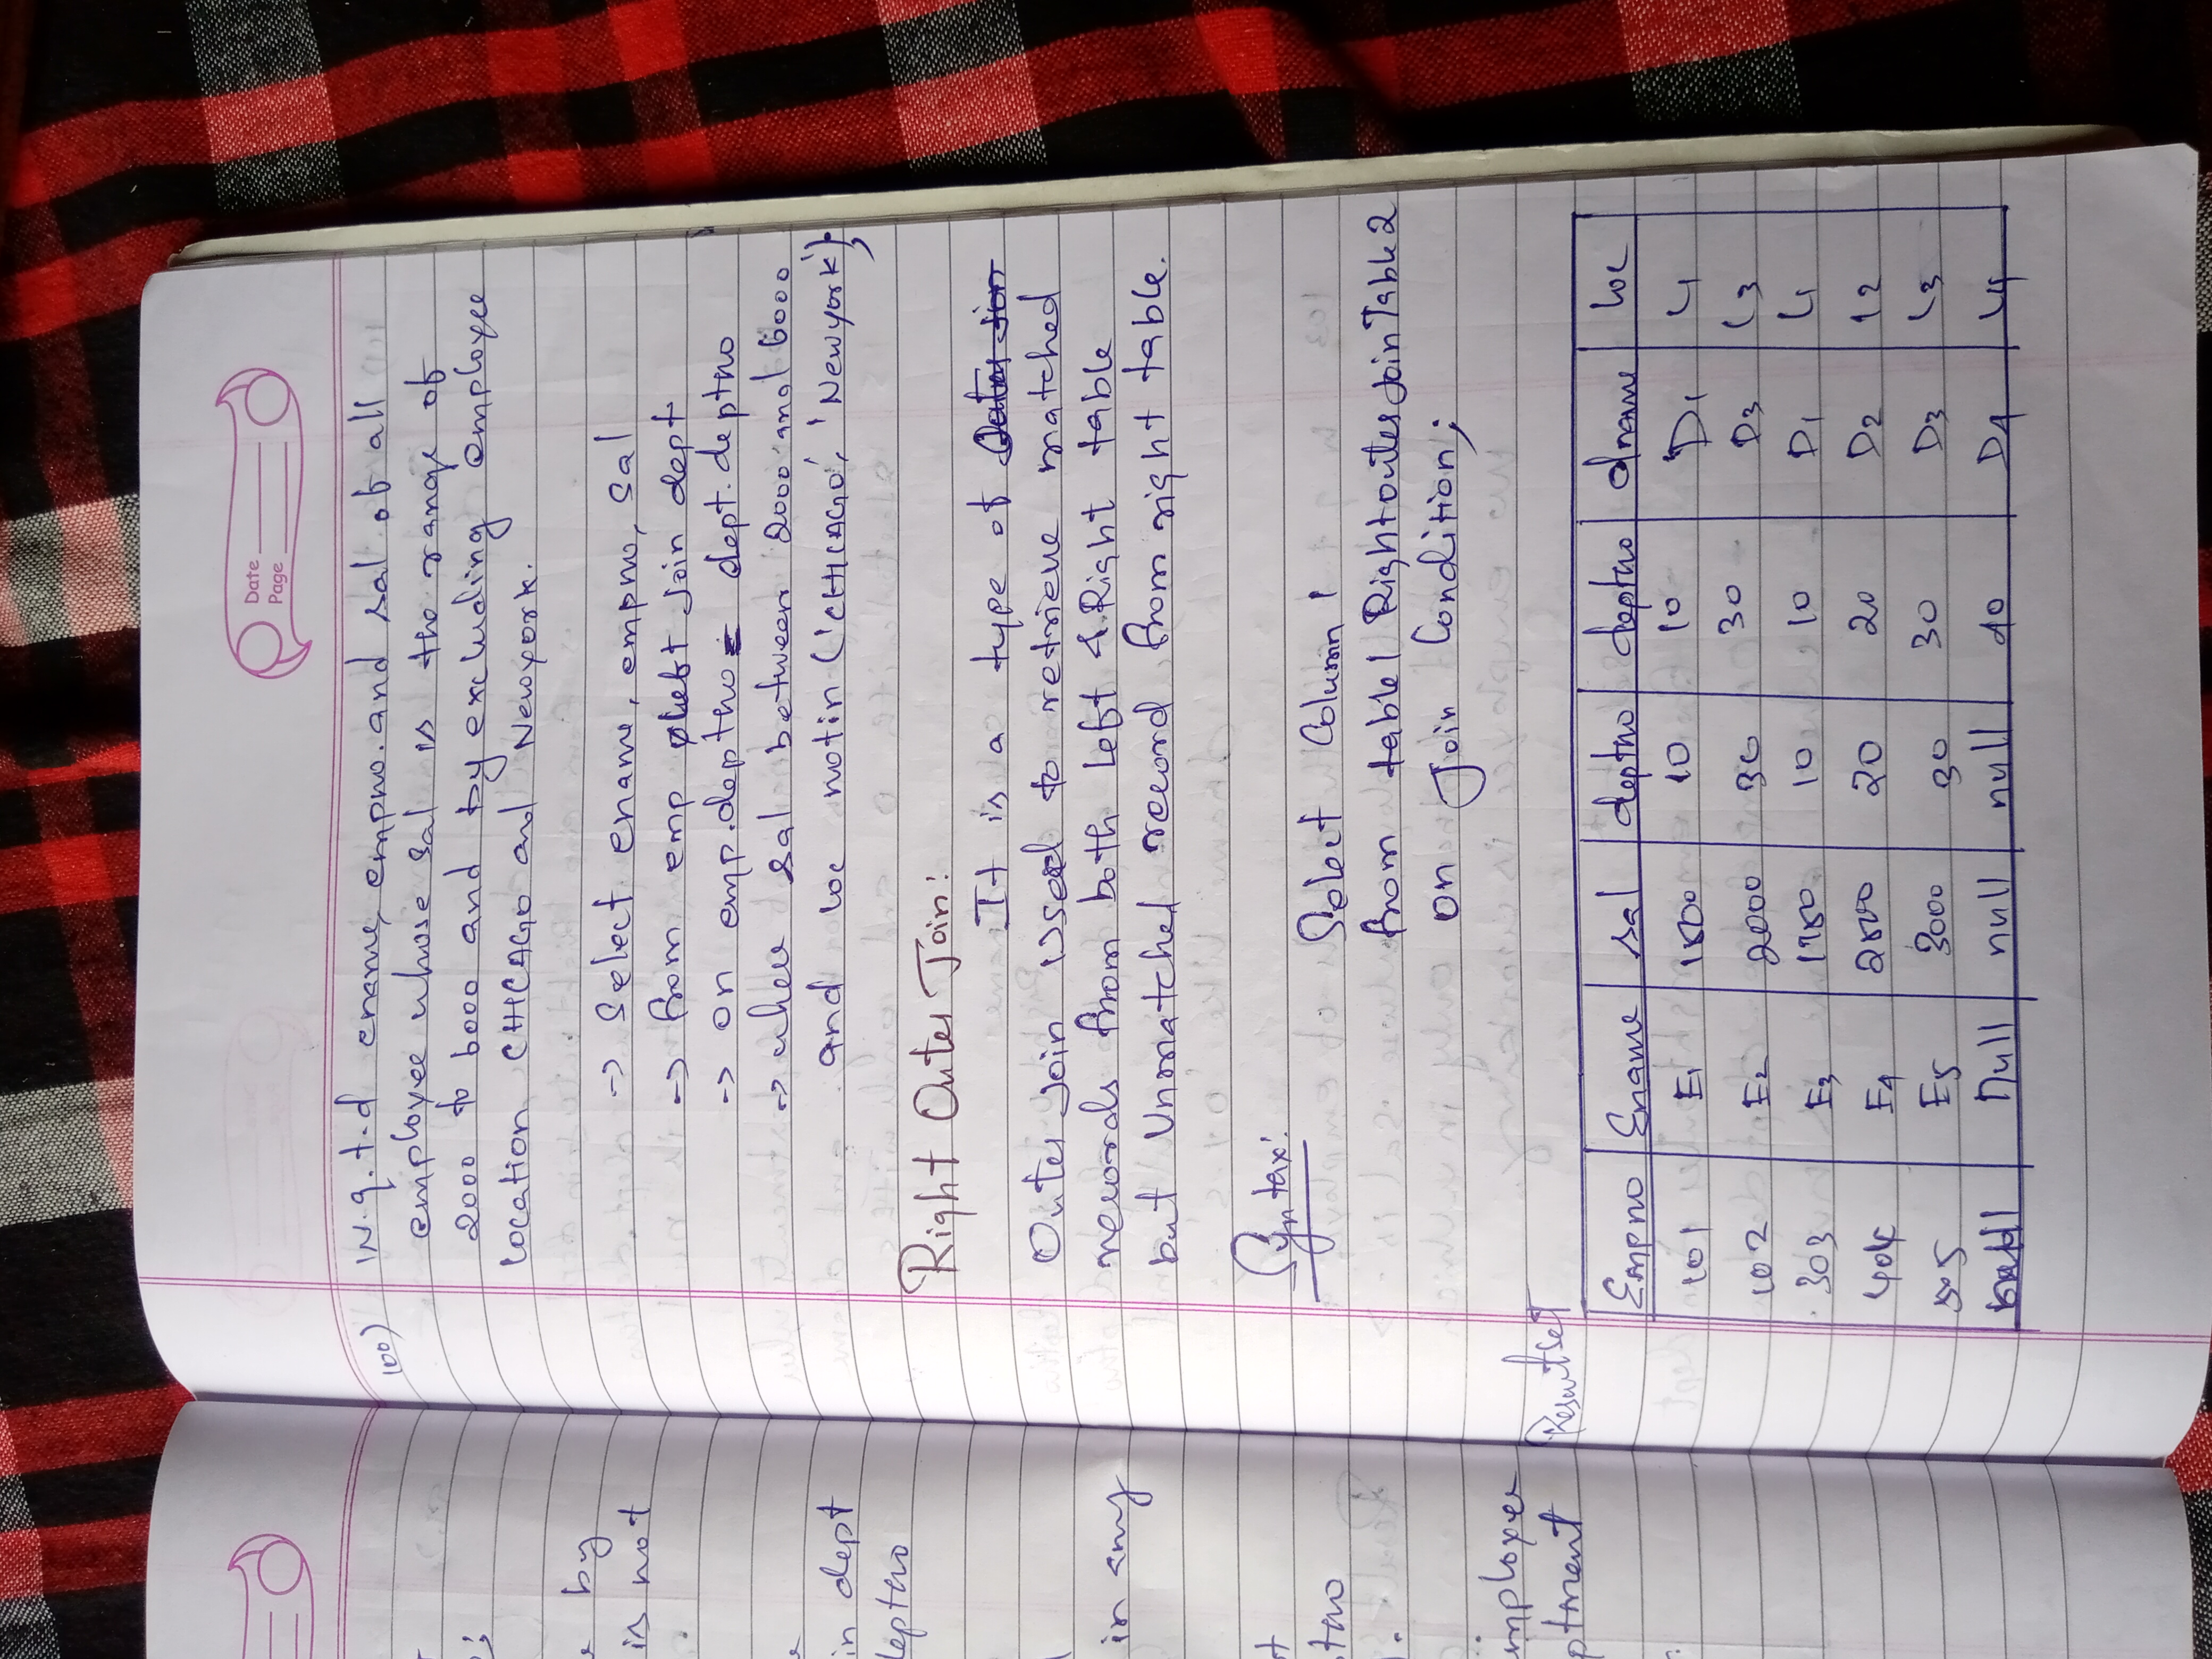 Date
Page
100) W.q.t.d ename, empno.and sal of all
employee whose sal is the range of
2000 to 6000 and by excluding employee
location CHICAGO and Newyork.
-> select ename, empno, sal
-> from emp left join dept
-> on emp.deptno = dept.deptno
-> where sal between 2000 and 6000
and loc notin ('CHICAGO', 'Newyork');
Right Outer Join:
It is a type of
Outer join used to retrieve matched
records from both left & Right table
but Unmatched record from right table.
Syntax:
Select Column 1
from table 1 Right outer Join Table 2
on Join Condition;
Resultset
Empno Ename sal deptno deptno dname loc
101 E1 1500 10 10 D1 L1
102 E2 2000 30 30 D3 L3
303 E3 1750 10 10 D1 L1
404 E4 2500 20 20 D2 L2
505 E5 3000 30 30 D3 L3
null null null null 40 D4 L4
by
is not
in dept
deptno
in any
employee